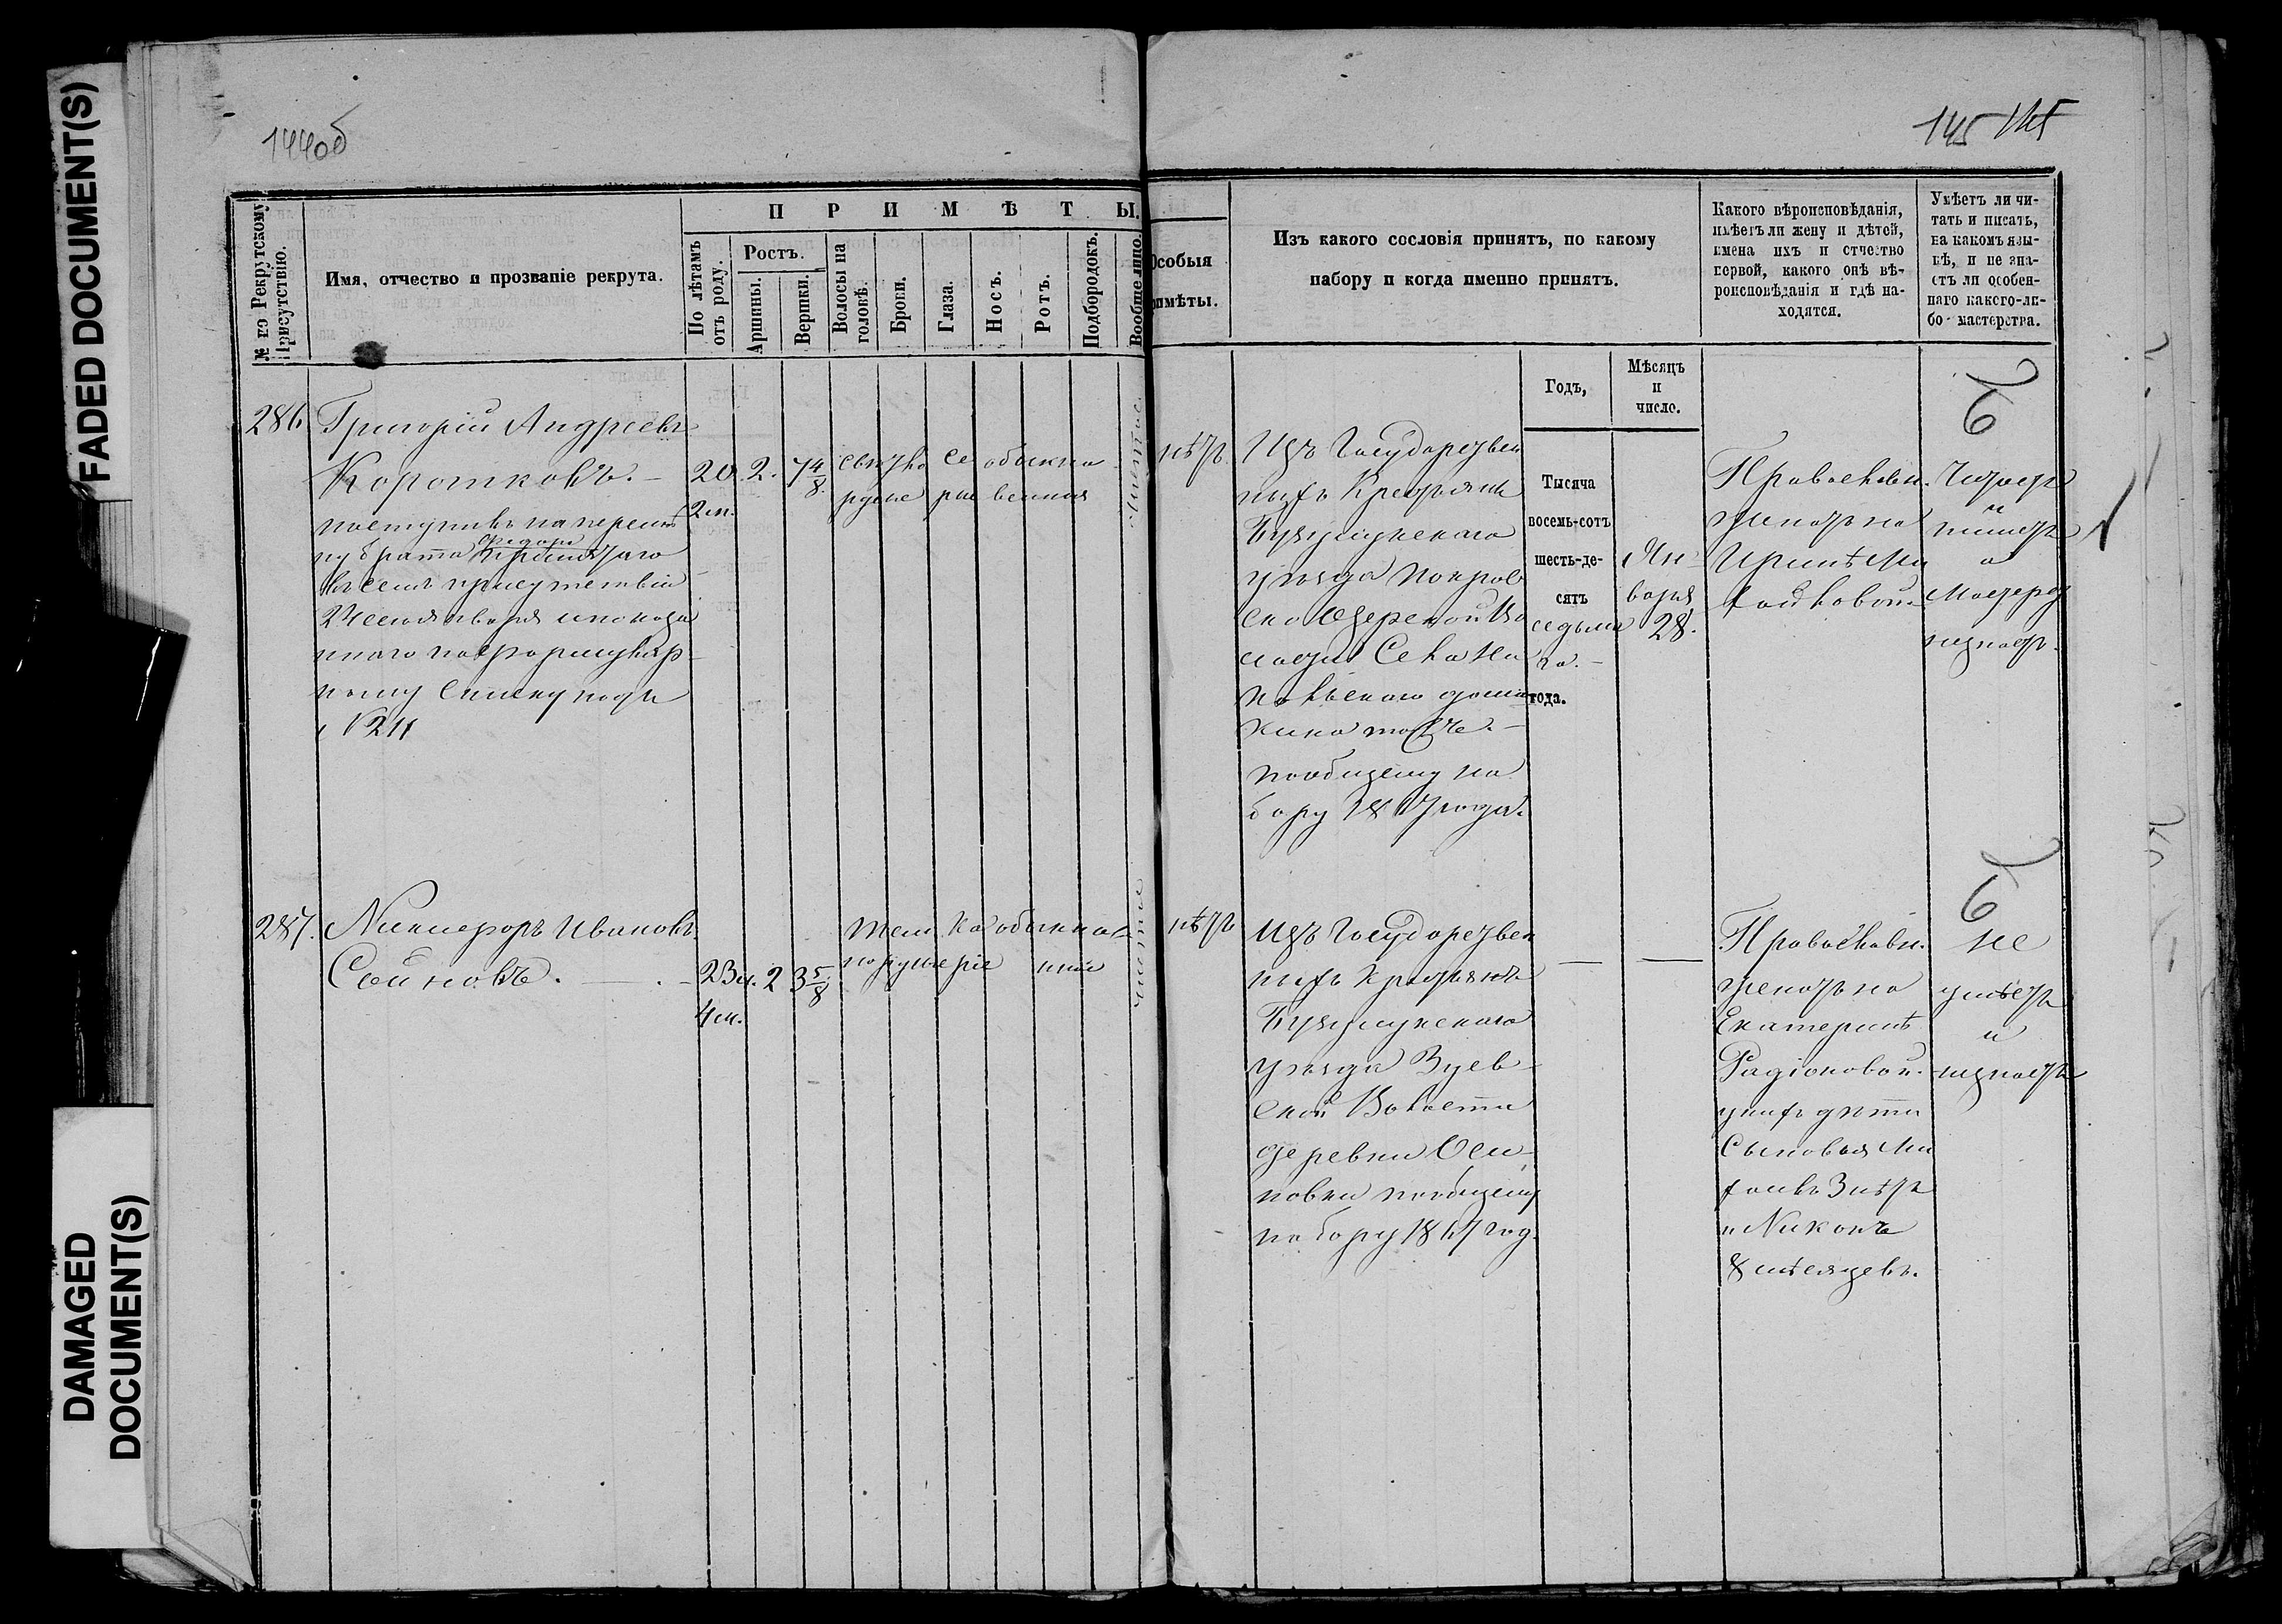 FADED DOCUMENT(S)
DAMAGED
DOCUMENT(S)
144об
145
№ по Рекрутскому
Присутствію.
Имя, отчество и прозваніе рекрута.
ПРИМѢТЫ.
По лѣтамъ
отъ роду.
Ростъ.
Аршины.
Вершки.
Волосы на
головѣ.
Брови.
Глаза.
Носъ.
Ротъ.
Подбородокъ.
Вообще лицо.
Особыя
примѣты.
Изъ какого сословія принятъ, по какому
набору и когда именно принятъ.
Какого вѣроисповѣданія,
имѣетъ ли жену и дѣтей,
имена ихъ и отчество
первой, какого онѣ вѣ-
роисповѣданія и гдѣ на-
ходятся.
Умѣетъ ли чи-
тать и писать,
на какомъ язы-
кѣ, и не зна-
етъ ли особен-
наго какого-ли-
бо мастерства.
Годъ,
Мѣсяцъ
и
число.
286
Григорій Андреевъ
Коротковъ. —
поступивъ на перемѣ
ну брата Федора принятаго
въ семъ присутствіи
января и показа
ннаго по формуляр-
ному списку подъ
№ 211
20
2 м.
2.
7 4/8
свѣтло
русые
се
рые
обыкно
венныя
чистое
нѣтъ
Изъ Государствен
ныхъ Крестьянъ
Бузулукскаго
уѣзда Покров
ско Во
лости Села
по общему на
бору 1867 года.
Тысяча
восемь-сотъ
шесть-де-
сятъ
седьма
го. —
года.
Ян-
варя
28.
Православн.
женатъ на
Иринѣ Ми
хайловой.
Читаетъ
и
пишетъ
а
мастерст
незнаетъ.
287.
Никифоръ Ивановъ
23 и.
4 м.
2
3 5/8
тем
норусые
ка
ріе
обыкнов
нніе
чистое
нѣтъ
Изъ Государствен
ныхъ Крестьянъ
Бузулукскаго
уѣзда Зуев-
ской Волости
деревни Оси-
новки по общему
набору 1867 год.
—
—
Православн.
женатъ на
Екатеринѣ
Радіоновой.
у нихъ дѣти
Сыновья Ми
хаилъ 3 лѣтъ
и Никонъ
8 мѣсяцевъ.
не
умѣетъ
и
незнаетъ